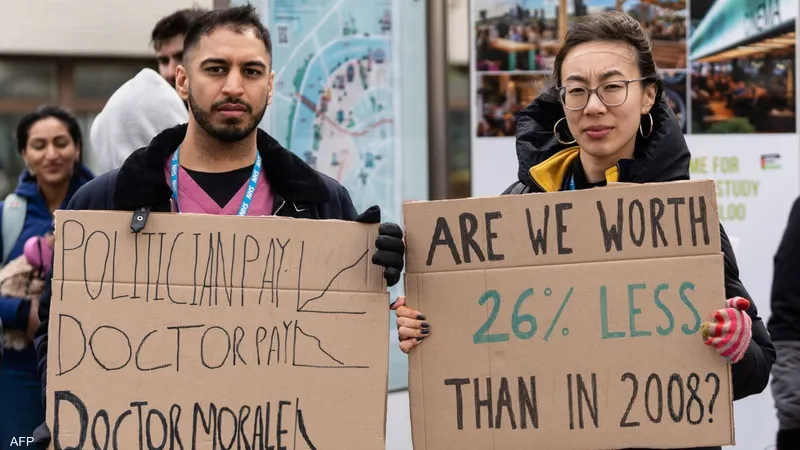 CINEMA
NHS
NHS
ME FOR
STUDY
LOO
POLITICIAN PAY
DOCTOR PAY
DOCTOR MORALE
ARE WE WORTH
26% LESS
THAN IN 2008?
AFP